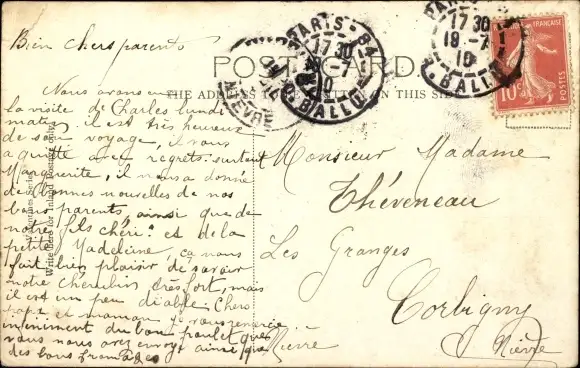 Bien chers parents
Nous avons eu
la visite de Charles lundi
matin il est très heureux
de son voyage, il nous
a quitté avec regrets surtout
Marguerite, il nous a donné
de bonnes nouvelles de nos
bons parents, ainsi que de
notre fils chéri et de la
petite Madeleine ça nous
fait bien plaisir de savoir
notre très fort, mais
il est un peu diable. Chers
papa et maman je vous remercie
infiniment du bon poulet que
vous nous avez envoyé ainsi que
des bons fromages
POST CARD.
THE ADDRESS TO BE WRITTEN ON THIS SIDE
Valentines Series
Write Here for Inland Postage only.
Monsieur Madame
Théveneau
Les Granges
Corbigny
Nièvre
Nièvre
PARIS - 84
17 30
18 -7
10
R. BALLU
NIEVRE
PARIS
17 30
18 -7
10
R. BALLU
RÉPUBLIQUE FRANÇAISE
10c
POSTES